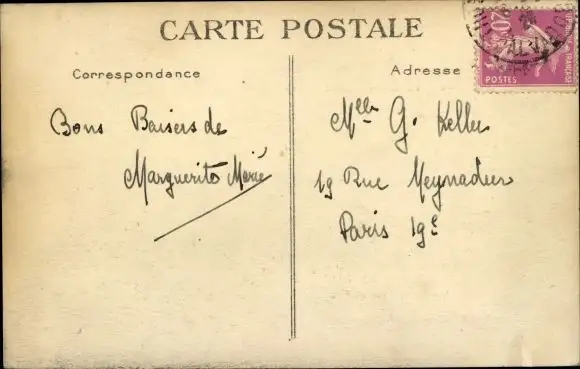 CARTE POSTALE
Correspondance
Adresse
20c
POSTES
CALVADOS
Bons Baisers de
Marguerite Marié
Mlle G. Keller
19 Rue Meynadier
Paris 19e